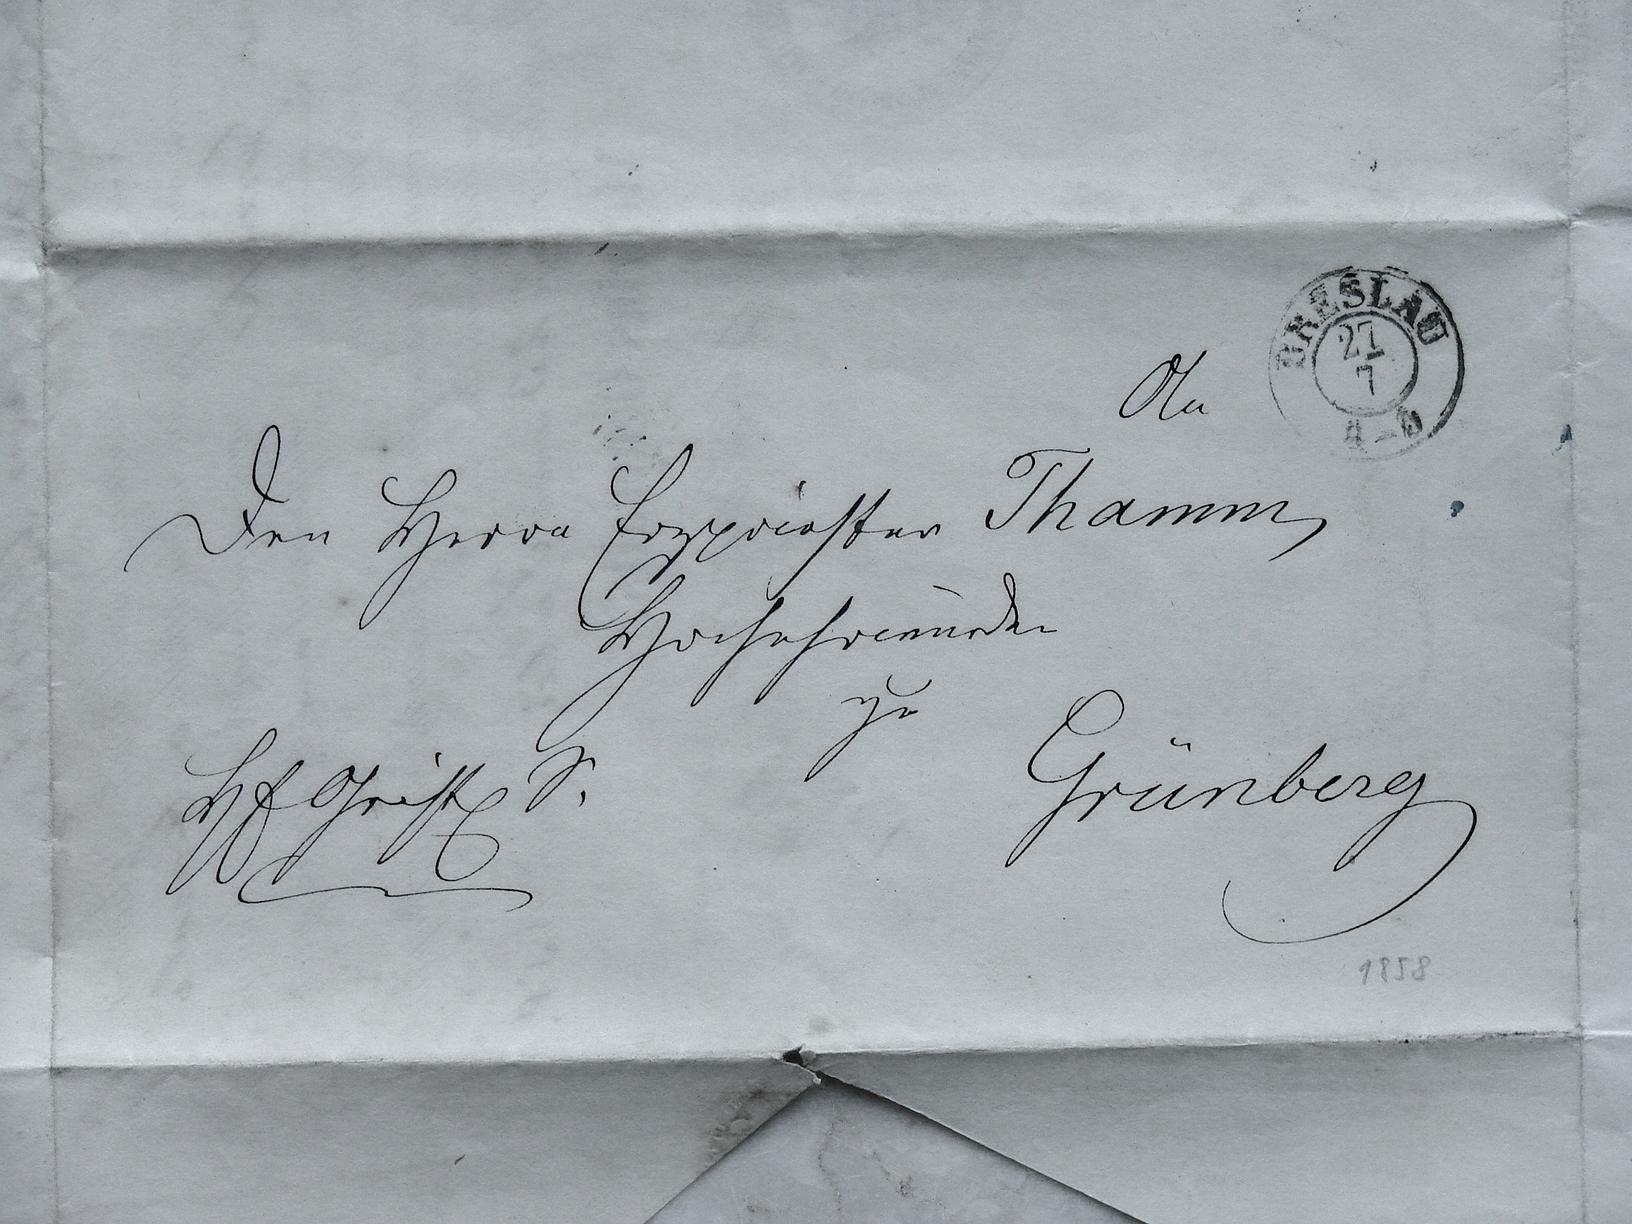 BRESLAU
27
7
An
Den Herrn Erzpriester Thamm
Hochehrwürden
zu
Grünberg
1858